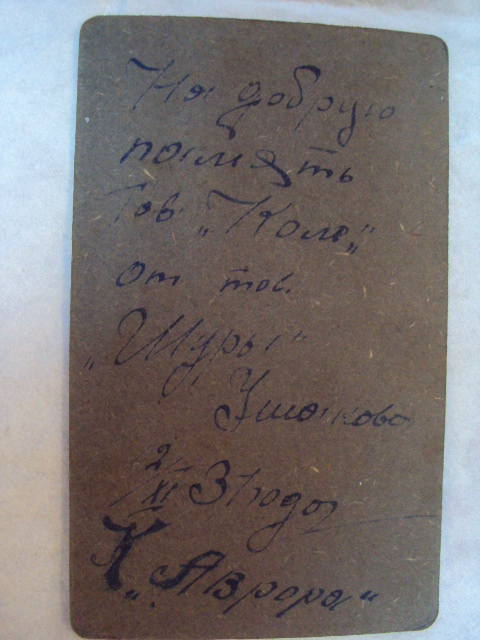 На добрую
память
Тов. „Коле„
от тов.
„Шуры"
Ушакова
2/XI 31 года
К „Аврора"